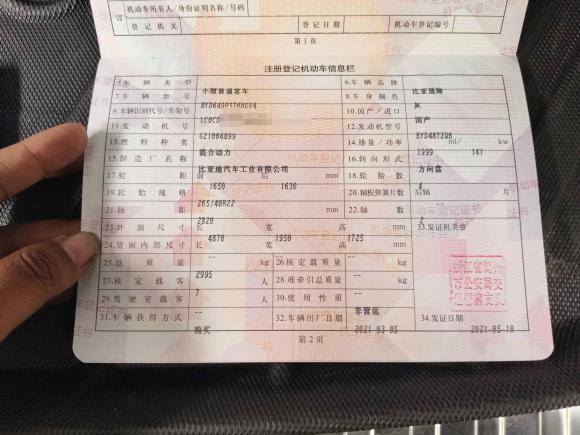 机动车所有人/身份证明名称/号码
登记机关 登记日期 机动车登记编号
第1页
注册登记机动车信息栏
5.车辆类型 小型普通客车 6.车辆品牌 比亚迪牌
7.车辆型号 8.车身颜色 灰
9.车辆识别代号/车架号 LC0CD 10.国产/进口 国产
11.发动机号 12.发动机型号 BYD487ZQB
13.燃料种类 混合动力 14.排量/功率 1999 ml/ 141 kw
15.制造厂名称 比亚迪汽车工业有限公司 16.转向形式 方向盘
17.轮距 前 1650 后 1630 mm 18.轮胎数 4
19.轮胎规格 265/40R22 20.钢板弹簧片数 后轴 -- 片
21.轴距 2820 mm 22.轴数 2
23.外廓尺寸 长 4870 宽 1950 高 1725 mm 33.发证机关章
24.货厢内部尺寸 长 -- 宽 -- 高 -- mm
25.总质量 2995 kg 26.核定载质量 -- kg
27.核定载客 7 人 28.准牵引总质量 -- kg
29.驾驶室载客 -- 人 30.使用性质 非营运
31.车辆获得方式 购买 32.车辆出厂日期 2021-03-05 34.发证日期 2021-05-10
第2页